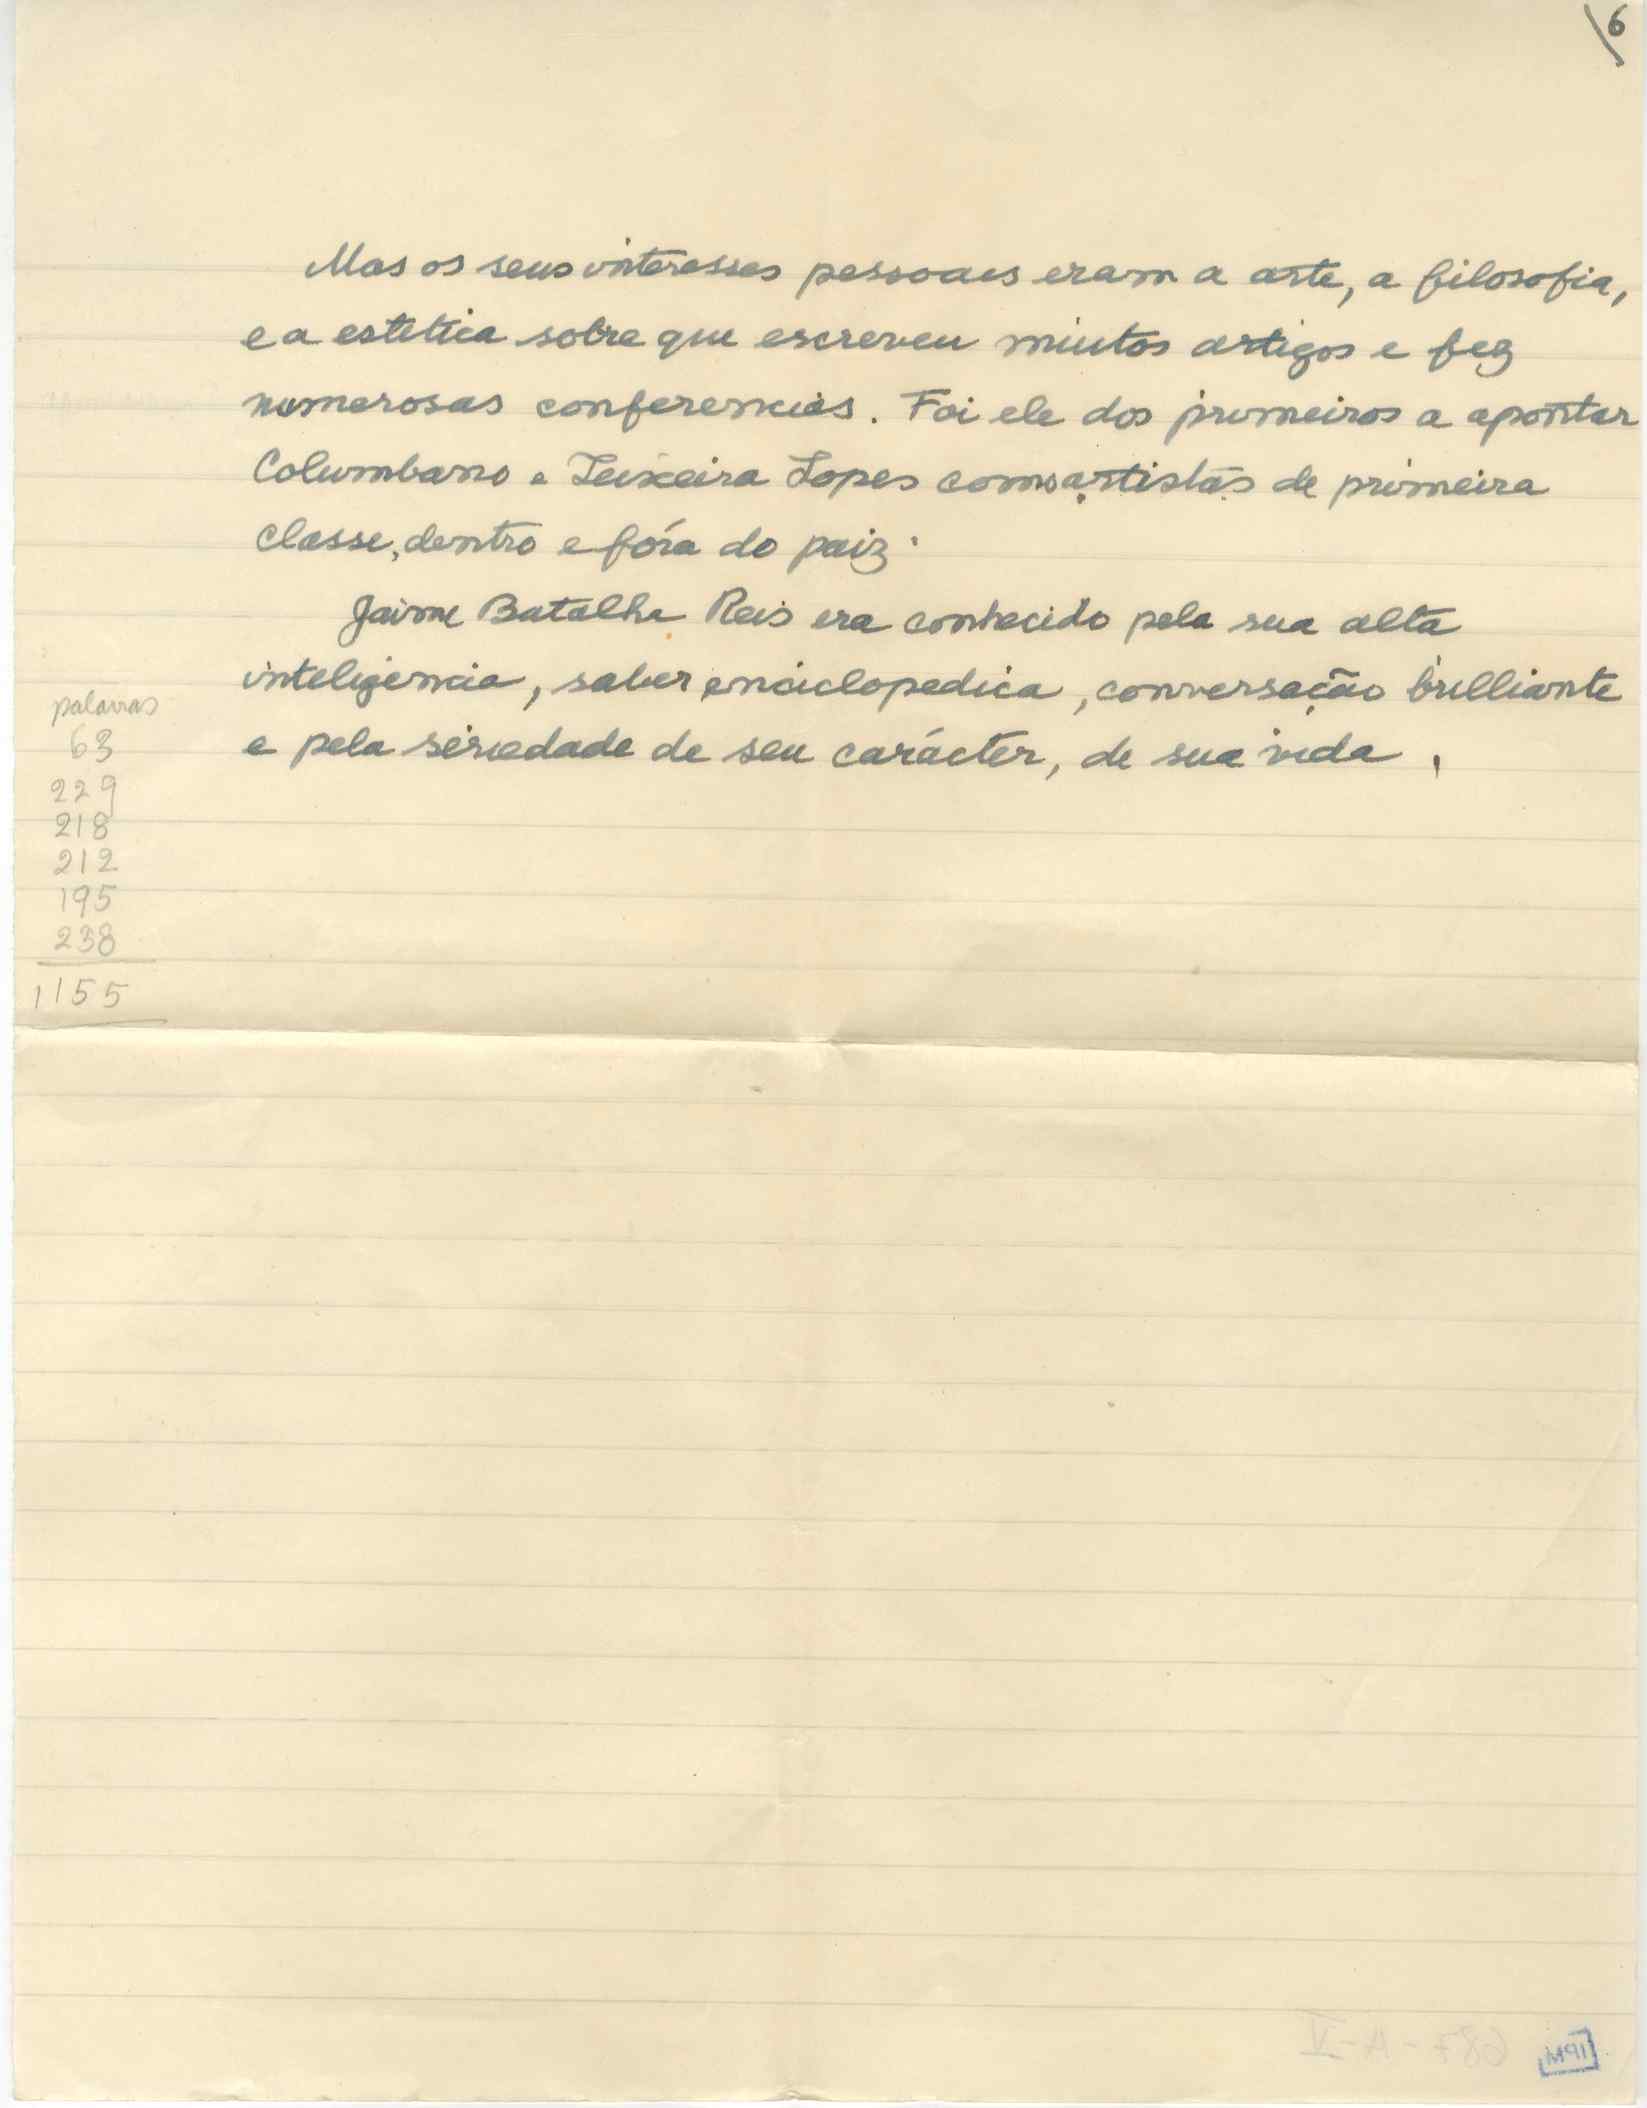 6
Mas os seus interesses pessoaes eram a arte, a filosofia,
e a estetica sobre que escreveu muitos artigos e fez
numerosas conferencias. Foi ele dos primeiros a apontar
Columbano e Teixeira Lopes como artistas de primeira
classe, dentro e fóra do paiz.
Jaime Batalha Reis era conhecido pela sua alta
inteligencia, saber enciclopedica, conversação brilliante
e pela seriedade de seu carácter, de sua vida.
palavras
63
229
218
212
195
238
1155
687-A-V
IPM